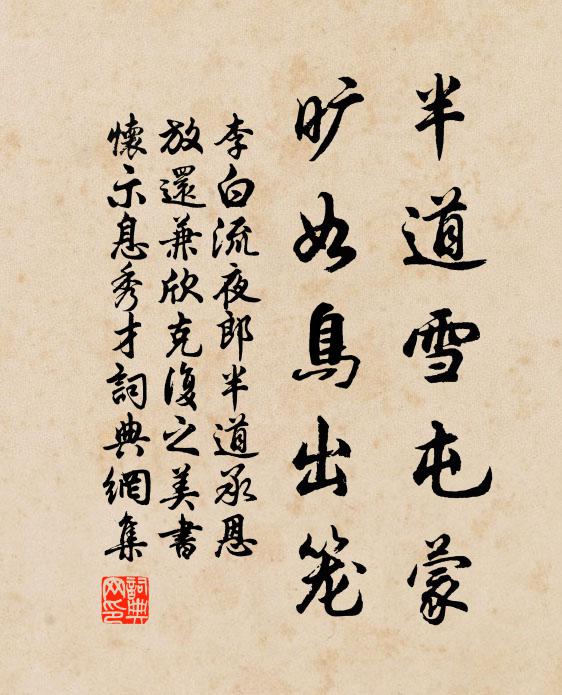 半道雪屯蒙
旷如鳥出笼
李白流夜郎半道承恩
放還兼欣克復之美書
懷示息秀才詞典網集
詞典
网印